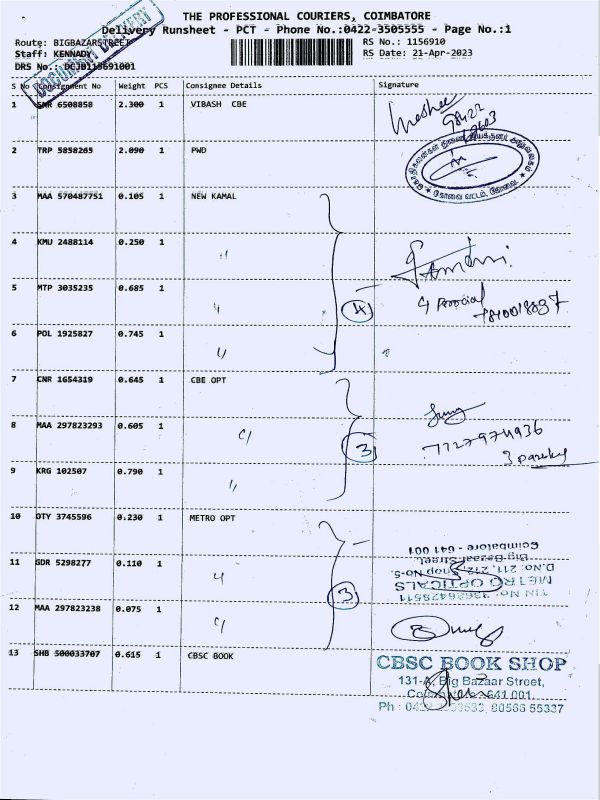 THE PROFESSIONAL COURIERS, COIMBATORE
Delivery Runsheet - PCT - Phone No.:0422-3505555 - Page No.:1
Route: BIGBAZARSTREET
RS No.: 1156910
Staff: KENNADY
RS Date: 21-Apr-2023
DRS No.: DCJB115691001
DOCUMENT DELIVERY
S No Consignment No Weight PCS Consignee Details Signature
1 SMR 6508858 2.300 1 VIBASH CBE
98422
2 TRP 5858265 2.090 1 PWD
3 MAA 570487751 0.105 1 NEW KAMAL
4 KMU 2488114 0.250 1 "
5 MTP 3035235 0.685 1 "
4
6 POL 1925827 0.745 1 "
7 CNR 1654319 0.645 1 CBE OPT
8 MAA 297823293 0.605 1 "
3
9 KRG 102507 0.790 1 "
10 OTY 3745596 0.230 1 METRO OPT
11 GDR 5298277 0.110 1 "
3
TIN No: 33626428511
METRO OPTICALS
D.No: 211, 212, Shop No-5.
Big Bazaar Street,
Coimbatore - 641 001
12 MAA 297823238 0.075 1 "
13 SHB 500033707 0.615 1 CBSC BOOK
CBSC BOOK SHOP
131-A, Big Bazaar Street,
641 001.
Ph : 80566 55337